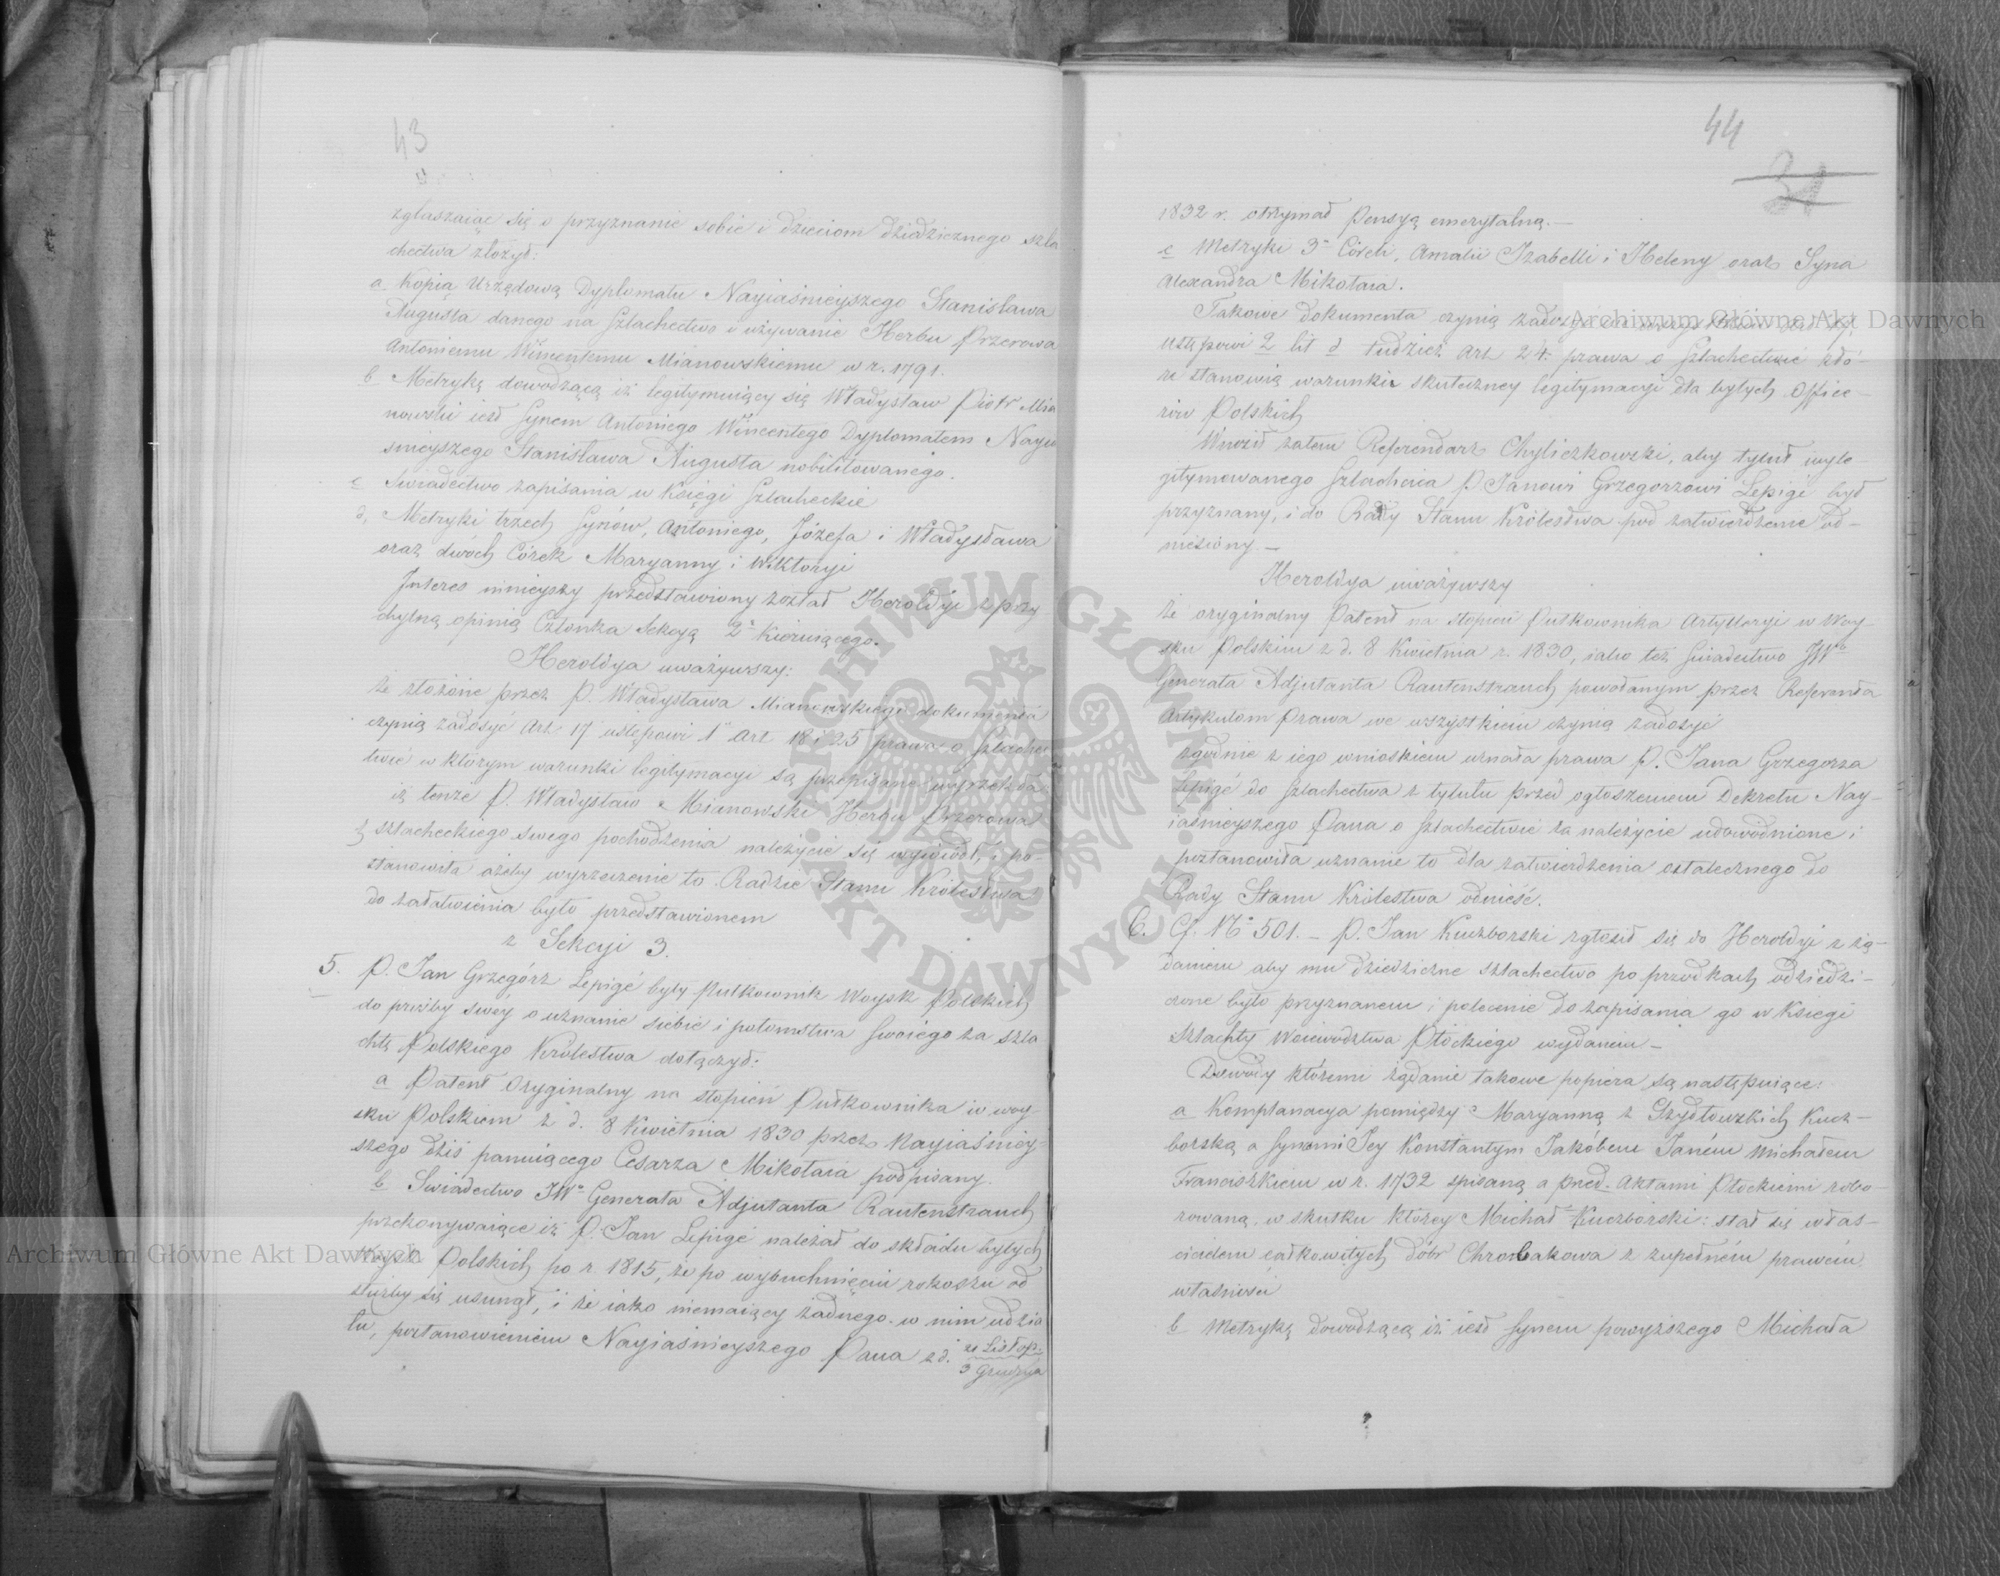 43
zgłaszaiąc się o przyznanie sobie i dzieciom dziedzicznego szla
chectwa złożył:
a Kopią Urzędową Dyplomatu Nayiaśnieyszego Stanisława
Augusta danego na Szlachectwo i używanie Herbu Przerowa
Antoniemu Wincentemu Mianowskiemu w r. 1791.
b Metrykę dowodzącą iż legitymuiący się Władysław Piotr Mia
nowski iest Synem Antoniego Wincentego Dyplomatem Nayia
śnieyszego Stanisława Augusta nobilitowanego.
c Świadectwo zapisania w Księgi Szlacheckie
d, Metryki trzech Synów, Antoniego, Józefa i Władysława
oraz dwóch Córek Maryanny i Wiktoryi
Interes ninieyszy przedstawiony został Heroldyi z przy
chylną opinią Członka Sekcyą 2ą Kieruiącego.
Heroldya uważywszy:
że złożone przez P. Władysława Mianowskiego dokumenta
czynią zadosyć Art. 17 ustępowi 1o Art 18 i 25 prawa o Szlache
twie w którym warunki legitymacyi są przepisane wyrzekła
iż tenże P. Władysław Mianowski Herbu Przerowa
z szlacheckiego swego pochodzenia należycie się wywiódł, i po-
stanowiła ażeby wyrzeczenie to Radzie Stanu Królestwa
do załatwienia było przedstawionem
z Sekcyi 3.
5. P. Jan Grzegórz Lepigé były Pułkownik Woysk Polskich
do prośby swéy o uznanie siebie i potomstwa swoiego za szla
chtę Polskiego Królestwa dołączył:
a Patent Oryginalny na stopień Pułkownika w woy-
sku Polskiem z d. 8 Kwietnia 1830 przez Nayiaśniey-
szego dziś panuiącego Cesarza Mikołaia podpisany.
b Swiadectwo JWo Generała Adjutanta Rautenstrauch
przekonywaiące iż P. Jan Lepigé należał do składu byłych
Woysk Polskich po r. 1815, że po wybuchnięciu rokoszu od
służby się usunął, i że iako niemaiący żadnego w nim udzia
łu, postanowieniem Nayiaśnieyszego Pana z d. 21 Listop.
3 Grudnia
44
1832 r. otrzymał Pensyą emerytalną. —
c Metryki 3ch Córek, Amalii Izabelli i Heleny oraz Syna
Alexandra Mikołaia.
Takowe dokumenta czynią zadosyć
ustępowi 2 lit d tudzież Art 24. prawa o Szlachectwie któ-
re stanowią warunki skuteczney legitymacyi dla byłych Office-
rów Polskich
Wniósł zatem Referendarz Chyliczkowski, aby tytuł wyle-
gitymowanego Szlachcica P. Janowi Grzegorzowi Lepigé był
przyznany, i do Rady Stanu Królestwa pod zatwierdzenie od-
niesiony. —
Heroldya uważywszy
że oryginalny Patent na stopień Pułkownika Artylleryi w Woy-
sku Polskim z d. 8 Kwietnia r. 1830, iako też Świadectwo JWo
Generała Adjutanta Rautenstrauch powołanym przez Referenta
Artykułom Prawa we wszystkiem czynią zadosyć
zgodnie z iego wnioskiem uznała prawa P. Jana Grzegorza
Lepigé do Szlachectwa z tytułu przed ogłoszeniem Dekretu Nay-
iaśnieyszego Pana o Szlachectwie za należycie udowodnione i
postanowiła uznanie to dla zatwierdzenia ostatecznego do
Rady Stanu Królestwa odnieść.
6. Cf. No 501. — P. Jan Kuczborski zgłosił się do Heroldyi z żą-
daniem aby mu dziedziczne szlachectwo po przodkach odziedzi-
czone było przyznanem i polecenie do zapisania go w Księgi
Szlachty Woiewództwa Płockiego wydanem —
Dowody któremi żądanie takowe popiera są następuiące:
a Komplanacya pomiędzy Maryanną z Szydłowskich Kucz-
borską a Synami Jey Konstantym Jakóbem Janém Michałem
Franciszkiem w r. 1732 spisaną a przed Aktami Płockiemi robo-
rowaną, w skutku którey Michał Kuczborski: stał się właś-
cicielem całkowitych dóbr Chrobakowa z zupełném prawem
własności
b Metrykę dowodzącą iż iest Synem powyższego Michała
Archiwum Główne Akt Dawnych
Archiwum Główne Akt Dawnych
ARCHIWUM GŁÓWNE AKT DAWNYCH